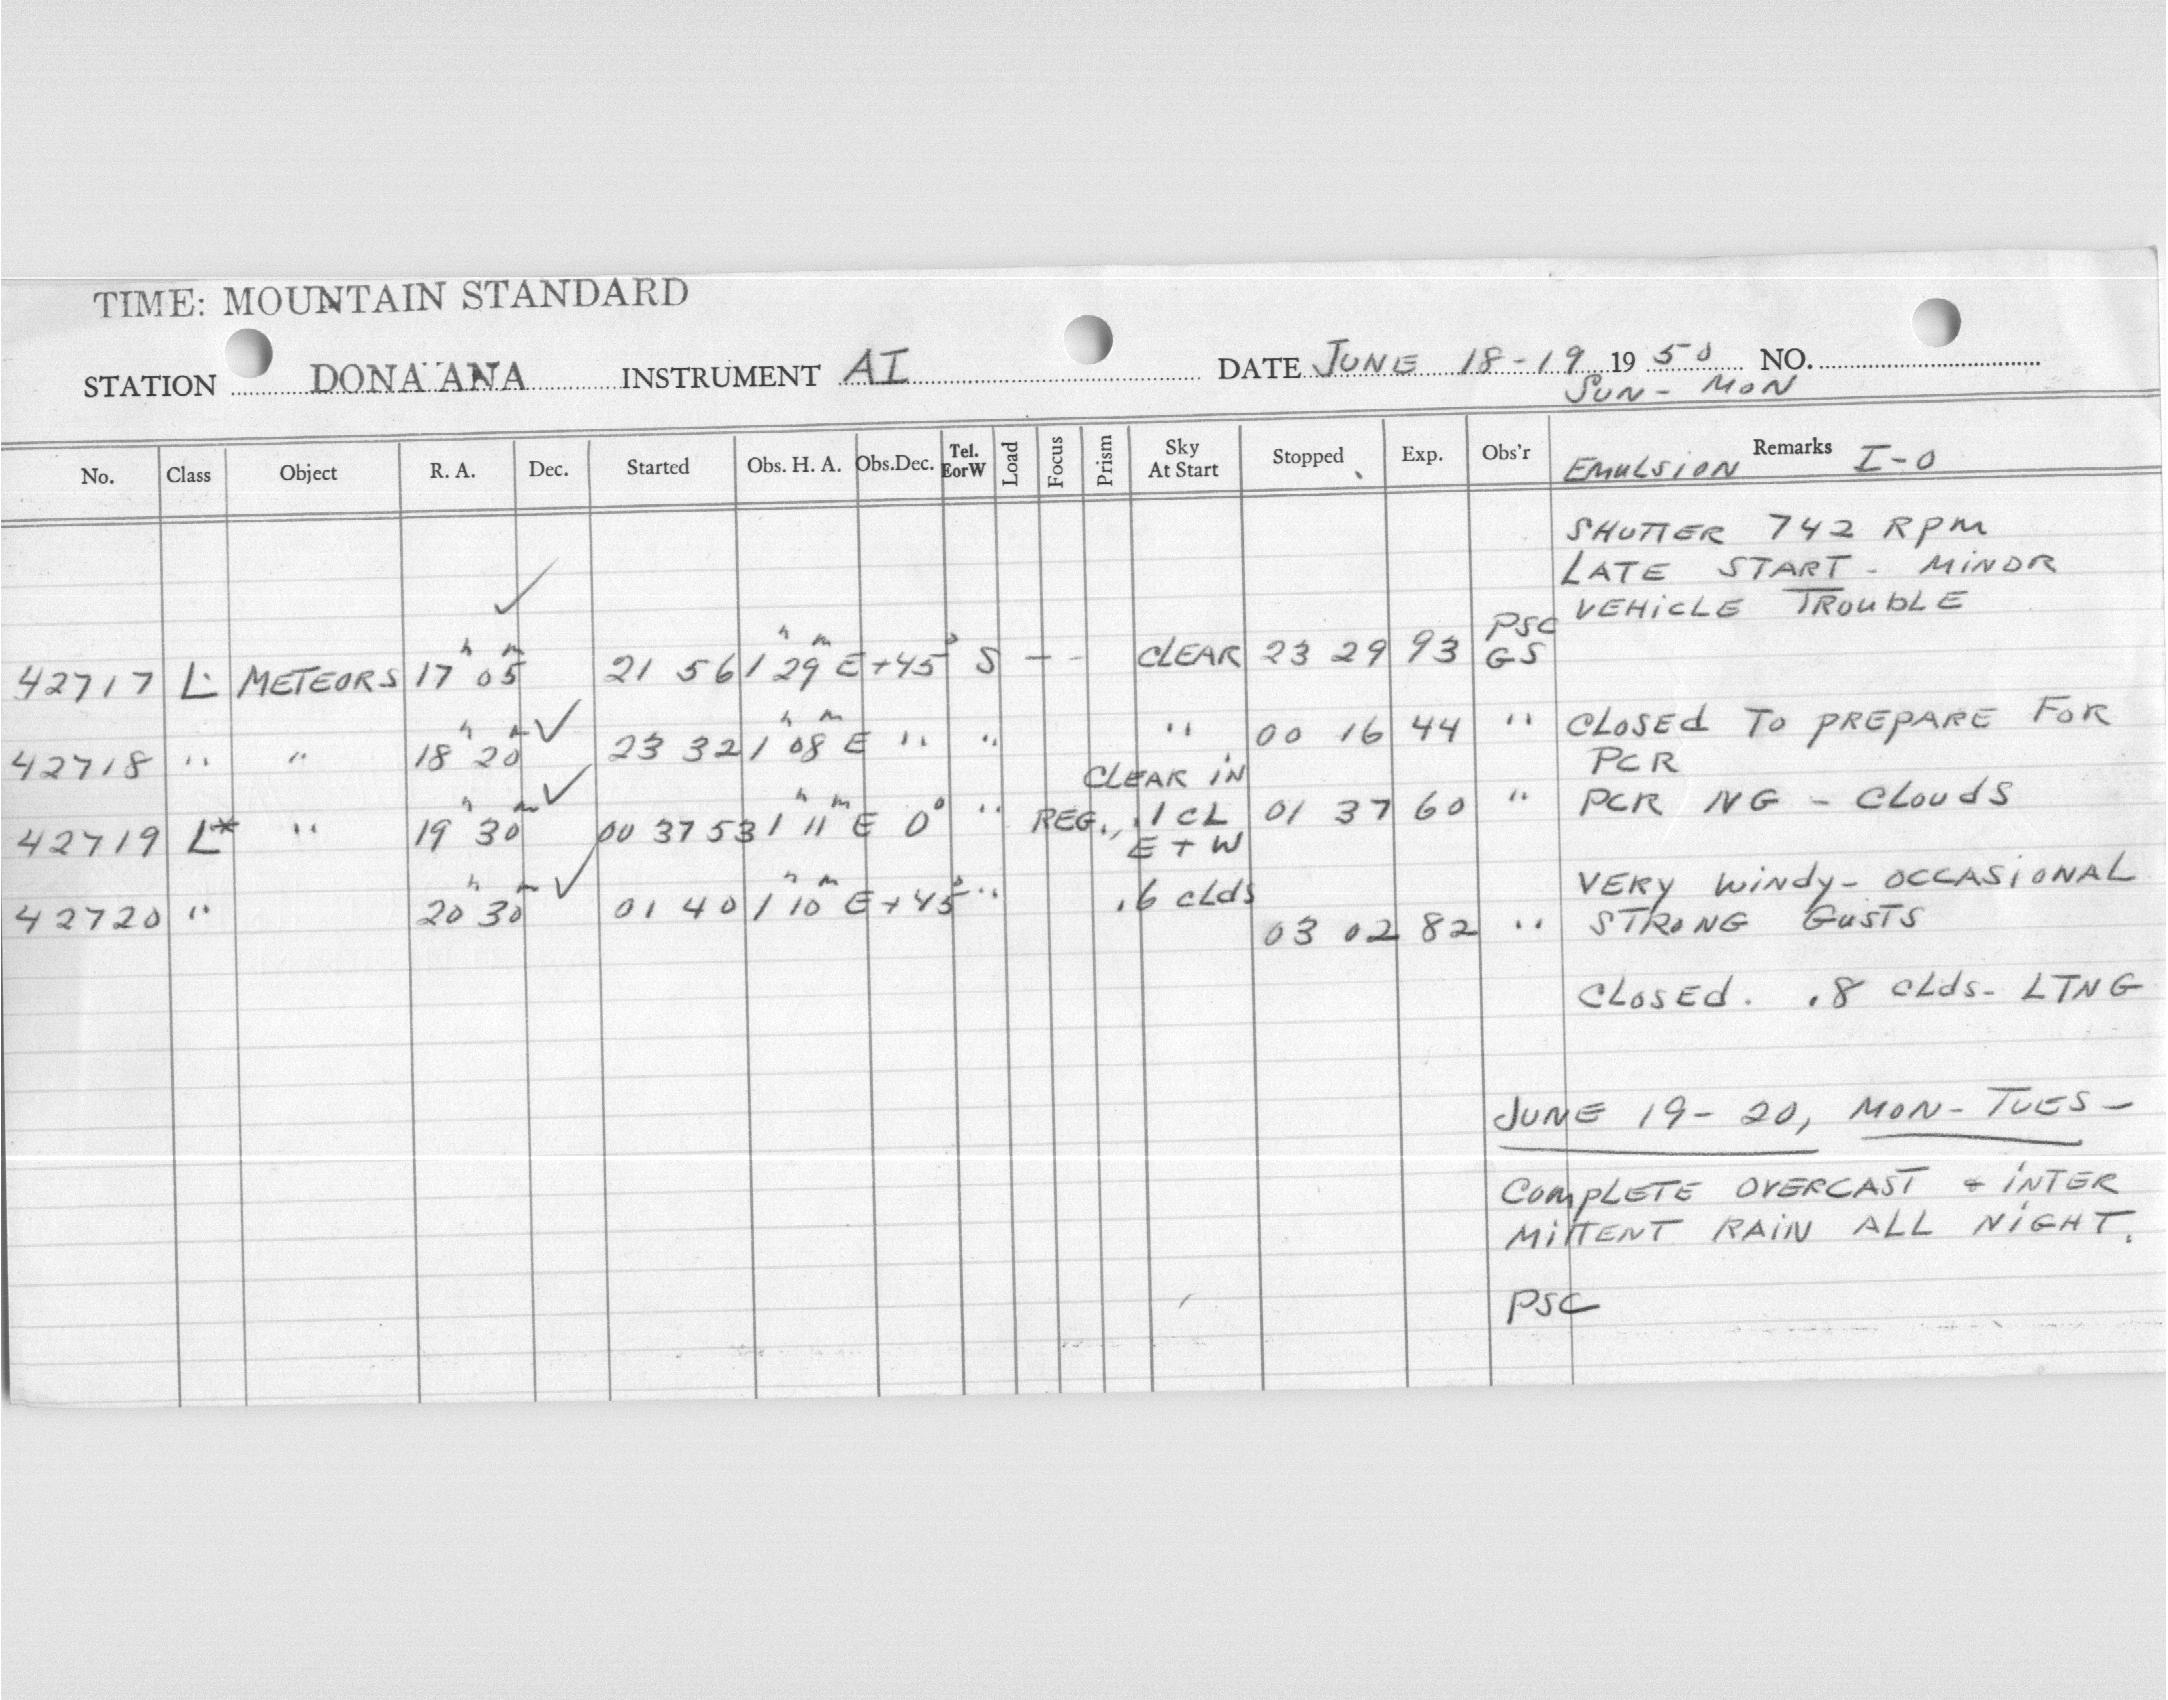 TIME: MOUNTAIN STANDARD
STATION DONA ANA INSTRUMENT AI DATE JUNE 18-19 1950 NO.
SUN- MON
No. Class Object R. A. Dec. Started Obs. H. A. Obs.Dec. Tel. EorW Load Focus Prism Sky At Start Stopped Exp. Obs'r Remarks
EMULSION I-O
SHUTTER 742 RPM
LATE START - MINOR
VEHICLE TROUBLE
42717 L METEORS 17h 05m 21 56 1h 29m E +45° S - - CLEAR 23 29 93 PSC GS
42718 " " 18h 20m 23 32 1h 08m E " " " 00 16 44 " CLOSED TO PREPARE FOR
PCR
42719 L* " 19h 30m 00 37 53 1h 11m E 0° " CLEAR IN REG., .1 CL E + W 01 37 60 " PCR NG - CLOUDS
42720 " 20h 30m 01 40 1h 10m E +45° " .6 clds 03 02 82 " VERY WINDY- OCCASIONAL
STRONG GUSTS
CLOSED. .8 CLds- LTNG
JUNE 19-20, MON-TUES-
COMPLETE OVERCAST + INTER
MITTENT RAIN ALL NIGHT.
PSC